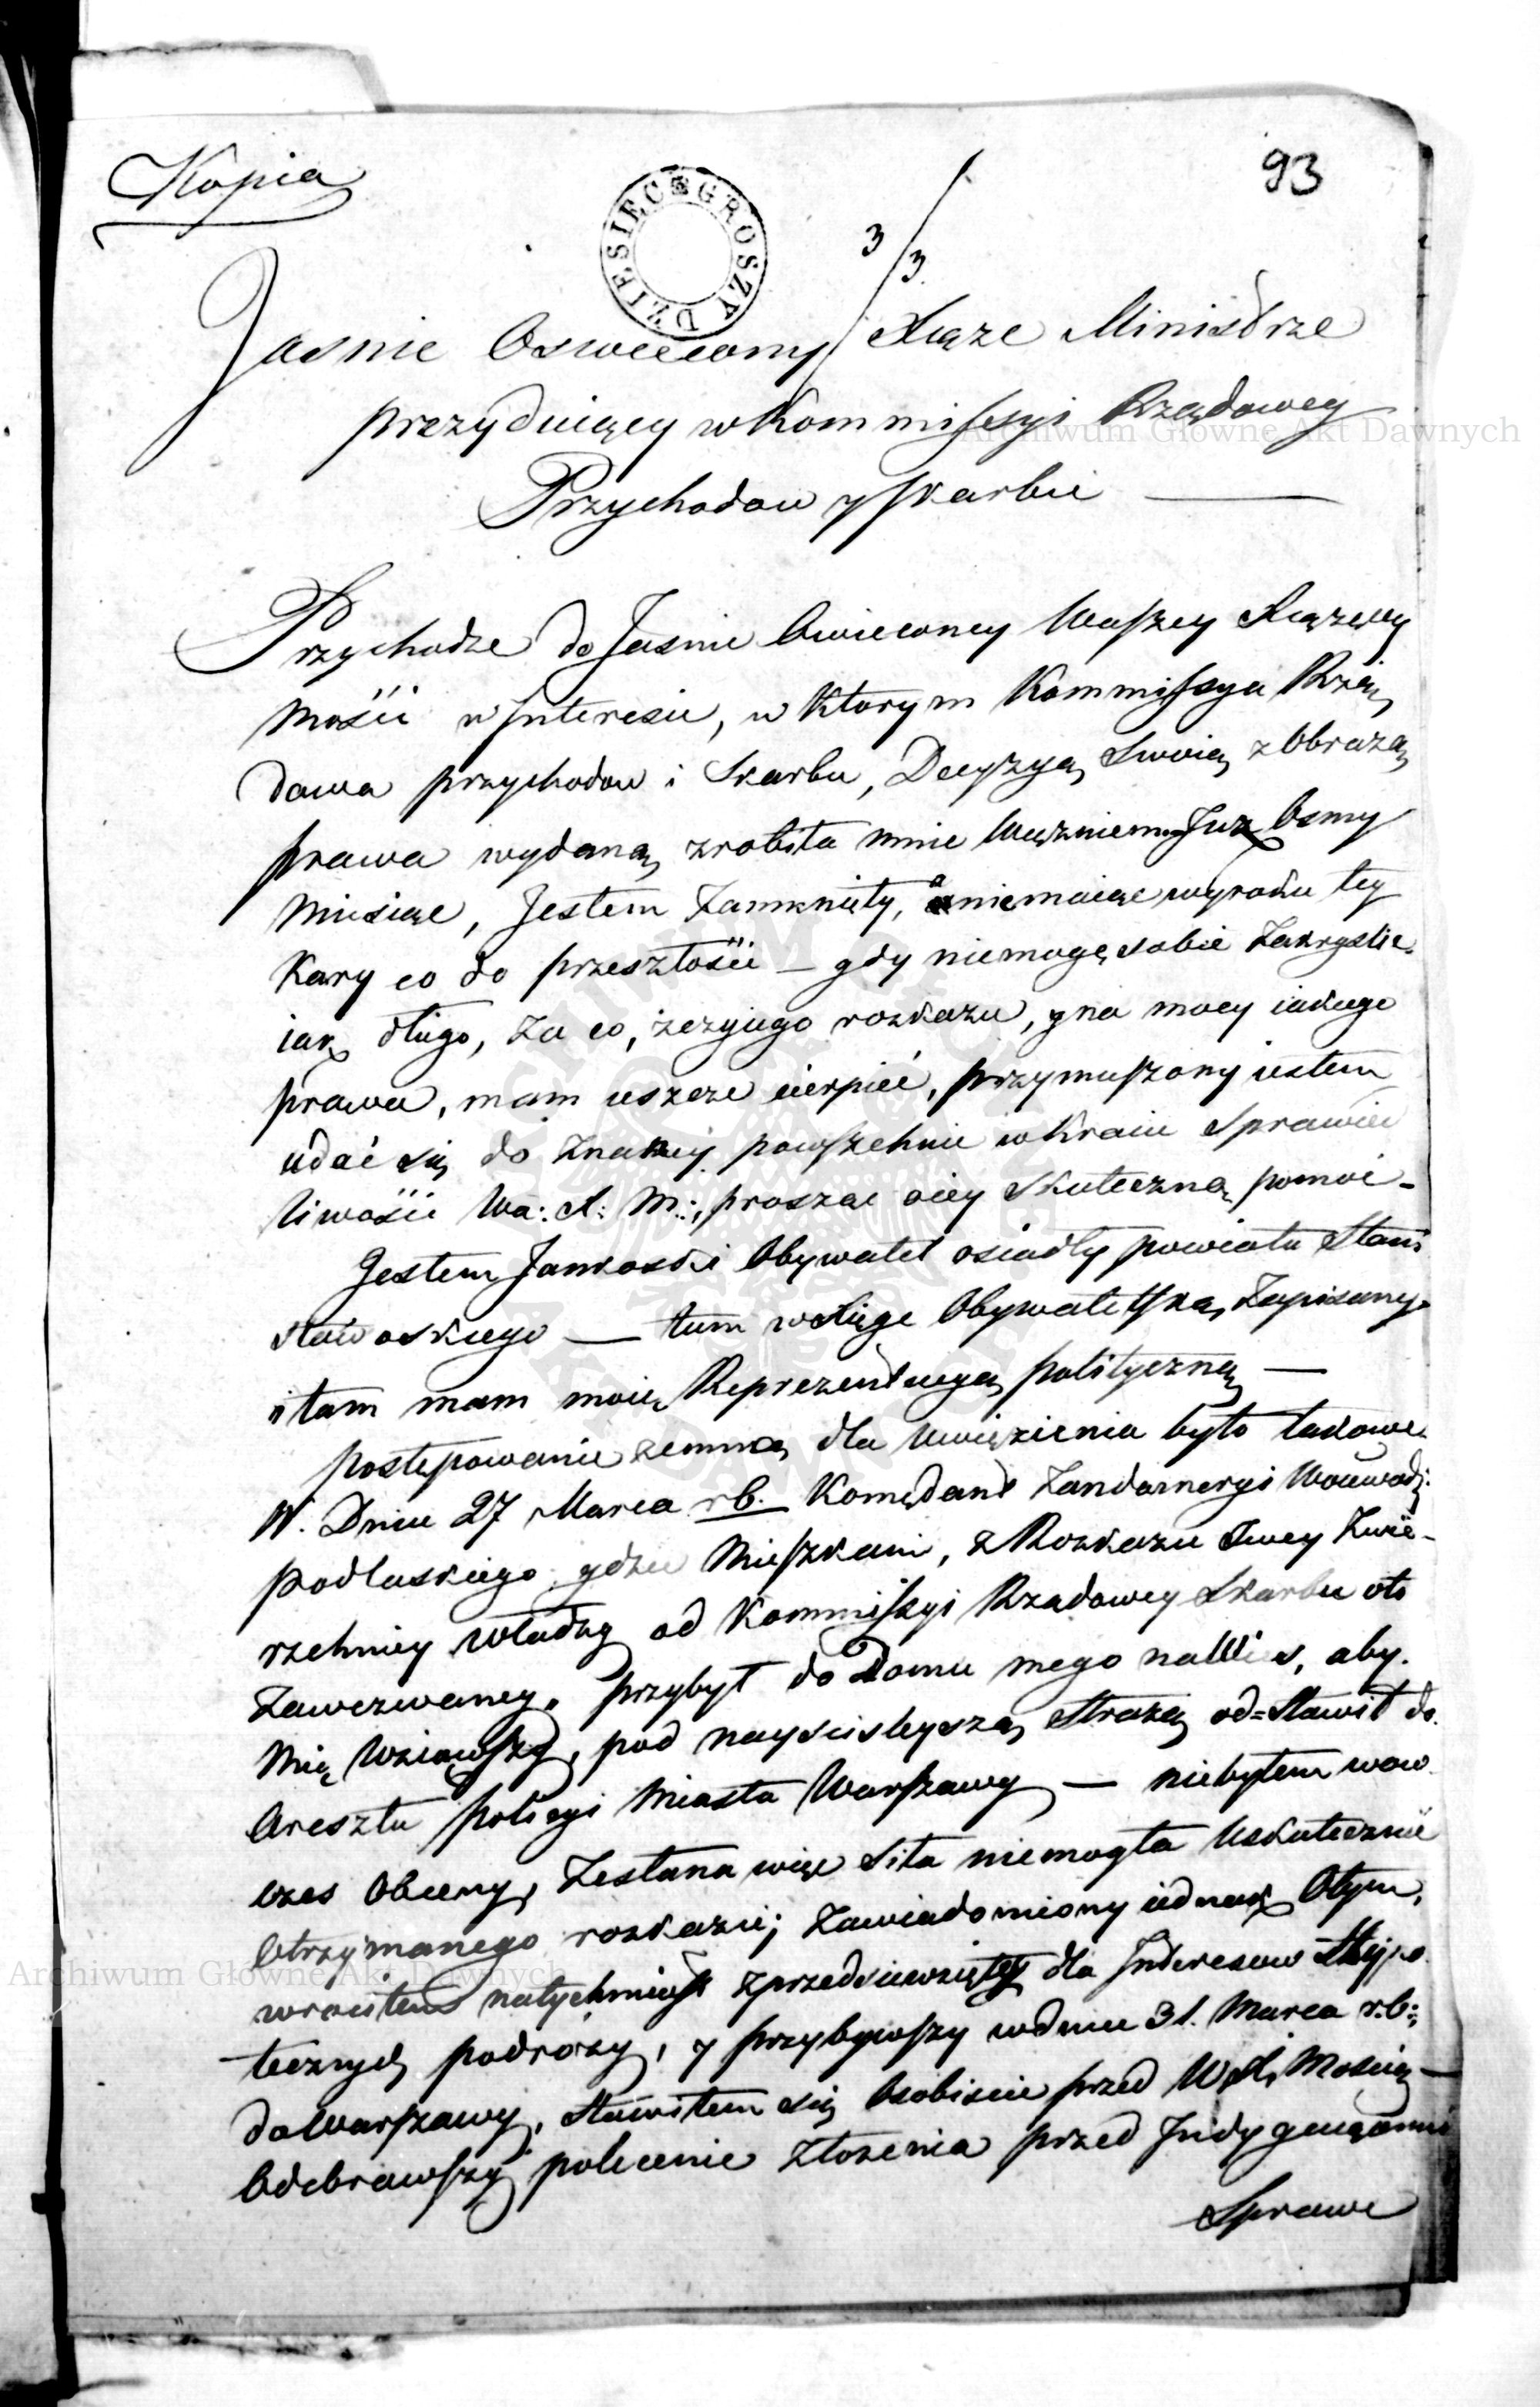 Kopia
93
DZIESIEC GROSZY
3/3
Jasnie Oswiecony Xiąze Ministrze
prezyduiący w Kommissyi Rządowey
Przychodow y Skarbu
Przychodze do Jasnie Oswieconey Waszey Xiązęcey
Mości w Interesie, w ktorym Kommissya Rzą
dowa przychodow i Skarbu, Decyzyą Swoią z Obrazą
prawa wydaną zrobiła mnie Więzniem. Juz Osmy
Miesiąc, Jestem Zamknięty, a niemaiąc wyroku tey
Kary co do przeszłości – gdy niemogę sobie Zakryslic
iak długo, za co, zczyiego rozkazu, y na mocy iakiego
prawa, mam ieszcze cierpieć, przymuszony iestem
udać się do Znaney powszechnie w Kraiu Sprawied
liwości Wa: X: M:, prosząc oiey Skuteczną pomoc –
Jestem Jankoski Obywatel osiadły powiatu Stani
sławoskiego — tam w Xięge Obywatelską Zapisany
i tam mam moią Reprezentacyą polityczną —
postępowanie zemną dla Uwięzienia było takowe.
W. Dniu 27 Marca rb. Komędant Zandarmeryi Woiewodz:
podlaskiego gdzie Mieszkam, z Rozkazu Swey Zwie-
rzchniey Władzy od Kommissyi Rządowey Skarbu oto
Zawezwaney, przybył do Domu mego na Wies, aby
Mię Wziąwszy, pod nayscisleyszą Strażą od=Stawił do
Aresztu policyi Miasta Warszawy — niebyłem wow
czas Obecny, Zesłana więc Siła niemogła Uskutecznić
Otrzymanego rozkazu; Zawiadomiony iednak Otym,
wrociłem natychmiast z przedsiewziętey dla Interesow Hypo
tecznych podrózy, y przybywszy w dniu 31. Marca r.b:
do Warszawy, Stawiłem się Osobiscie przed W X. Moscią —
Odebrawszy polecenie Złozenia przed Indygencyami
Sprawe